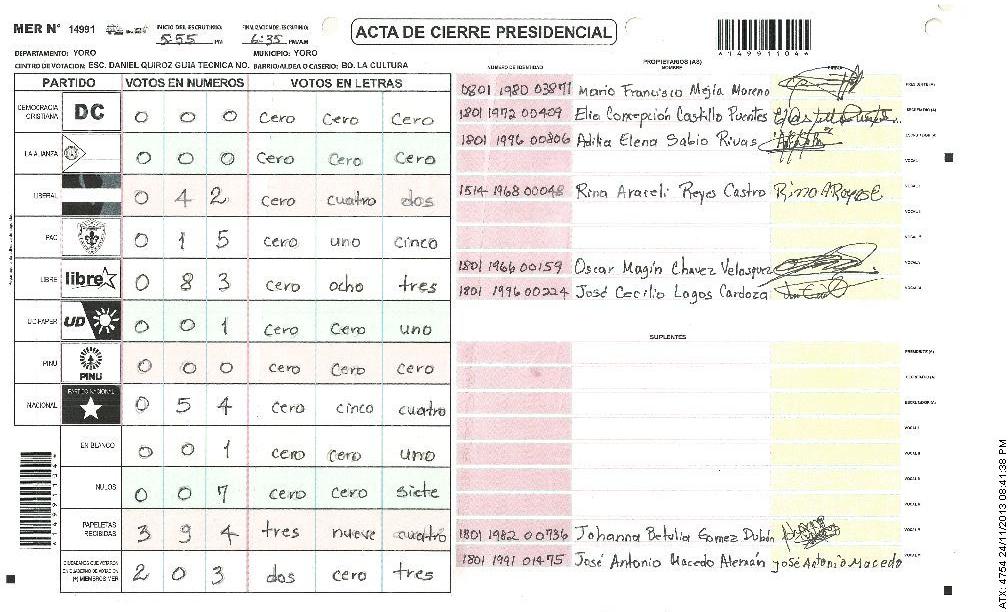 MER N° 14991
INICIO DEL ESCRUTINIO:
5:55 PM
FINALIZACION DE ESCRUTINIO:
6:35 PM/AM
ACTA DE CIERRE PRESIDENCIAL
*149911044*
DEPARTAMENTO: YORO MUNICIPIO: YORO
CENTRO DE VOTACION: ESC. DANIEL QUIROZ GUIA TECNICA NO. BARRIO/ALDEA O CASERIO: BO. LA CULTURA
PARTIDO VOTOS EN NUMEROS VOTOS EN LETRAS
DEMOCRACIA CRISTIANA DC 0 0 0 cero cero cero
LA ALIANZA 0 0 0 cero cero cero
LIBERAL 0 4 2 cero cuatro dos
PAC 0 1 5 cero uno cinco
LIBRE libre 0 8 3 cero ocho tres
UD FAPER UD 0 0 1 cero cero uno
PINU PINU 0 0 0 cero cero cero
NACIONAL PARTIDO NACIONAL 0 5 4 cero cinco cuatro
EN BLANCO 0 0 1 cero cero uno
NULOS 0 0 7 cero cero siete
PAPELETAS RECIBIDAS 3 9 4 tres nueve cuatro
CIUDADANOS QUE VOTARON EN CUADERNO DE VOTACION (+) MIEMBROS MER 2 0 3 dos cero tres
NUMERO DE IDENTIDAD PROPIETARIOS (AS) NOMBRE FIRMA
0801 1980 03871 Mario Francisco Mejía Moreno PRESIDENTE (A)
1801 1972 00409 Elio Concepción Castillo Puentes SECRETARIO (A)
1801 1996 00806 Aditia Elena Sabio Rivas ESCRUTADOR (A)
VOCAL I
1514 1968 00048 Rina Araceli Reyes Castro Rina A Reyes C VOCAL II
VOCAL III
VOCAL IV
1801 1966 00159 Oscar Magín Chavez Velasquez VOCAL V
1801 1996 00224 José Cecilio Lagos Cardoza VOCAL VI
SUPLENTES
PRESIDENTE (A)
SECRETARIO (A)
ESCRUTADOR (A)
VOCAL I
VOCAL II
VOCAL III
VOCAL IV
1801 1982 00736 Johanna Betulia Gomez Dubón VOCAL V
1801 1991 01475 José Antonio Macedo Alemán José Antonio Macedo VOCAL VI
ATX: 4754 24/11/2013 08:41:38 PM